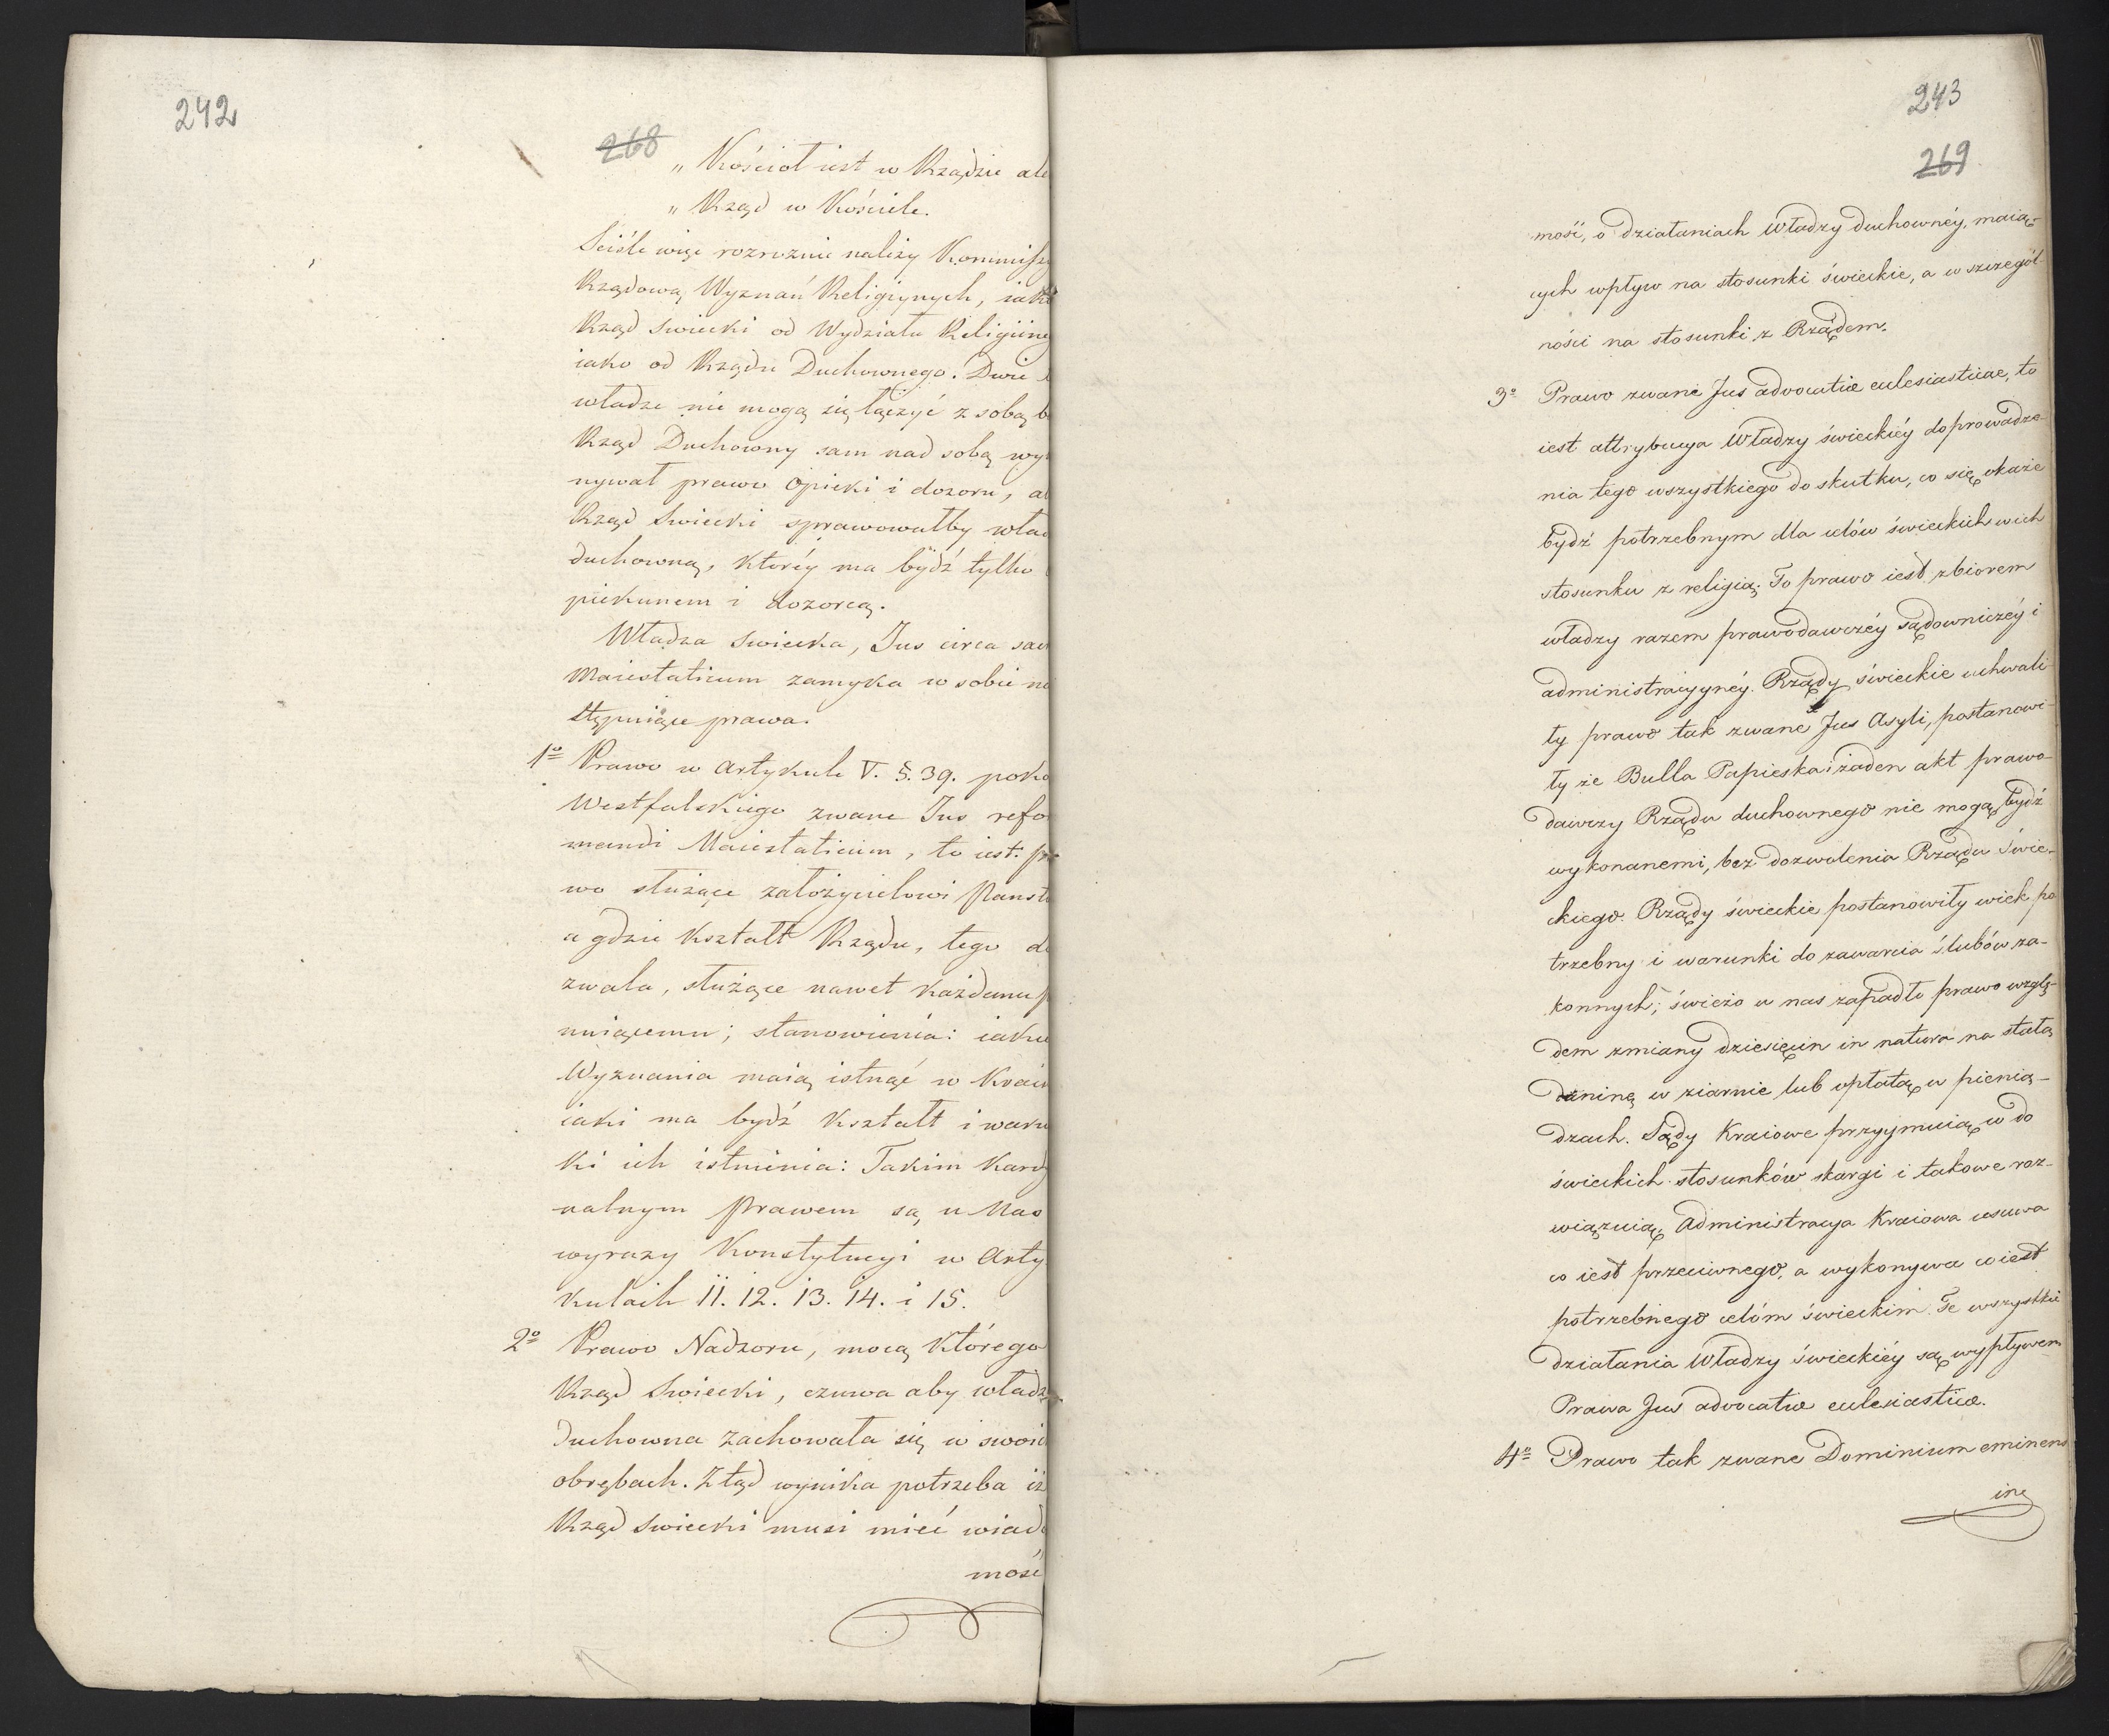 242
268
„ Kościoł iest w Rządzie ale
„ Rząd w Kościele.
Sciśle więc rozroznic należy Kommissy
Rządową Wyznań Religiynych, iako
Rząd Swiecki od Wydziału Religiine
iako od Rządu Duchownego. Dwie
władze nie mogą się łączyć z sobą b
Rząd Duchowny sam nad sobą wy
nywał prawo Opieki i dozoru, al
Rząd Swiecki sprawowałby wład
duchowną, któréy ma bydź tylko
piekunem i dozorcą.
Władza Swiecka, Jus circa sac
Maiestaticum zamyka w sobie na
stępuiące prawa.
1º Prawo w Artykule V. §. 39. poko
Westfalskiego zwane Jus refo
mandi Maiestaticum, to iest: pr
wo służące założycielowi Panst
a gdzie Kształt Rządu, tego do
zwala, służące nawet każdemu p
nuiącemu; stanowienia: iakie
Wyznania maią istnąć w Krai
iaki ma bydź Kształt i warun
ki ich istnienia: Takim Kardy
nalnym Prawem są u Nas
wyrazy Konstytucyi w Arty
kułach 11. 12. 13. 14. i 15.
2º Prawo Nadzoru, mocą którego
Rząd Swiecki, czuwa aby władz
Duchowna zachowała się w swoic
obrębach. Ztąd wynika potrzeba iż
Rząd Swiecki musi mieć wiado
mość
243
269
mość, o działaniach Władzy duchownéy, maią-
cych wpływ na stosunki świeckie, a w szczegól-
ności na stosunki z Rządem.
3º Prawo zwane Jus advocatiæ eclesiasticae, to
iest attrybucya Władzy świeckiéy doprowadze-
nia tego wszystkiego do skutku, co się okaże
bydź potrzebnym dla celów świeckich w ich
stosunku z religią; To prawo iest zbiorem
władzy razem prawodawczéy sądowniczéy i
administracyynéy. Rządy świeckie uchwali-
ły prawo tak zwane Jus Asyli, postanowi-
ły że Bulla Papieska i żaden akt prawo-
dawczy Rządu duchownego nie mogą bydź
wykonanemi, bez dozwolenia Rządu Świe-
ckiego. Rządy świeckie postanowiły wiek po
trzebny i warunki do zawarcia ślubów za-
konnych; świeżo u nas zapadło prawo wzglę-
dem zmiany dziesięcin in natura na stałą
daninę w ziarnie lub opłatą w pienią-
dzach. Sądy Kraiowe przyymuią w do
świeckich stosunków skargi i takowe roz-
wiązuią, Administracya Kraiowa usuwa
co iest przeciwnego, a wykonywa co iest
potrzebnego celóm świeckim. Te wszystkie
działania Władzy świeckiéy są wypływem
Prawa Jus advocatiæ eclesiasticæ.
4º Prawo tak zwane Dominium eminens